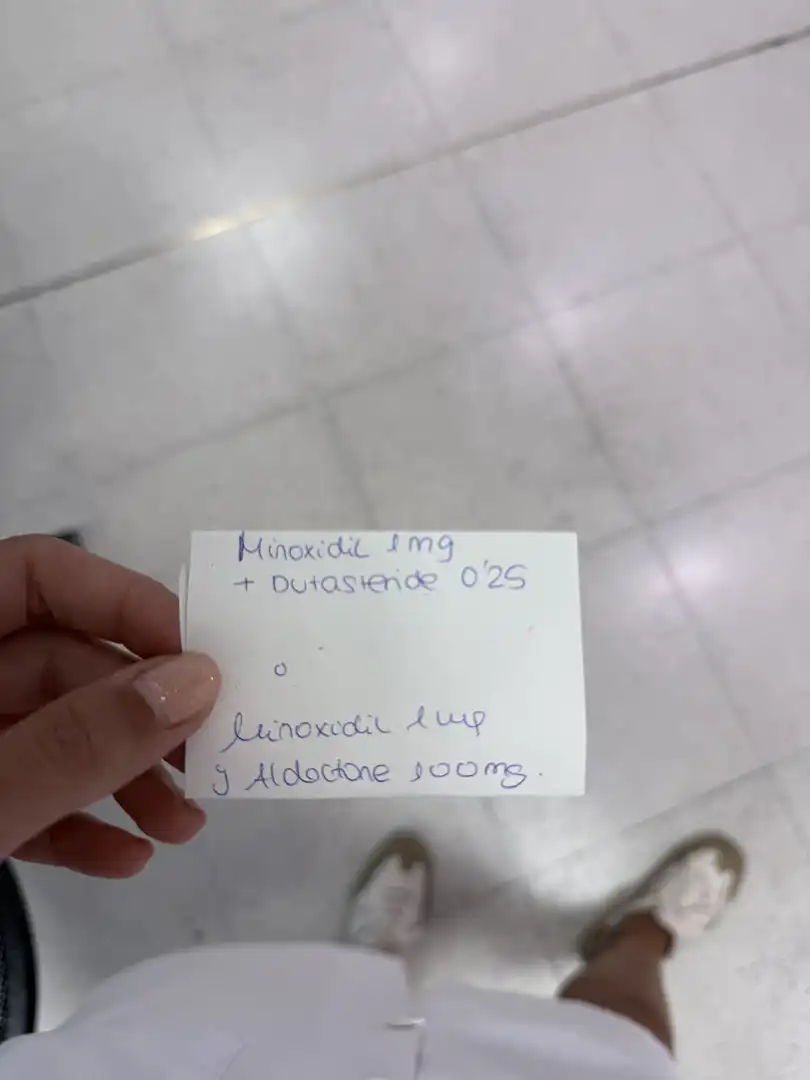 Minoxidil 1mg
+ Dutasteride 0'25
o
Minoxidil 1mg
y Aldactone 100mg.